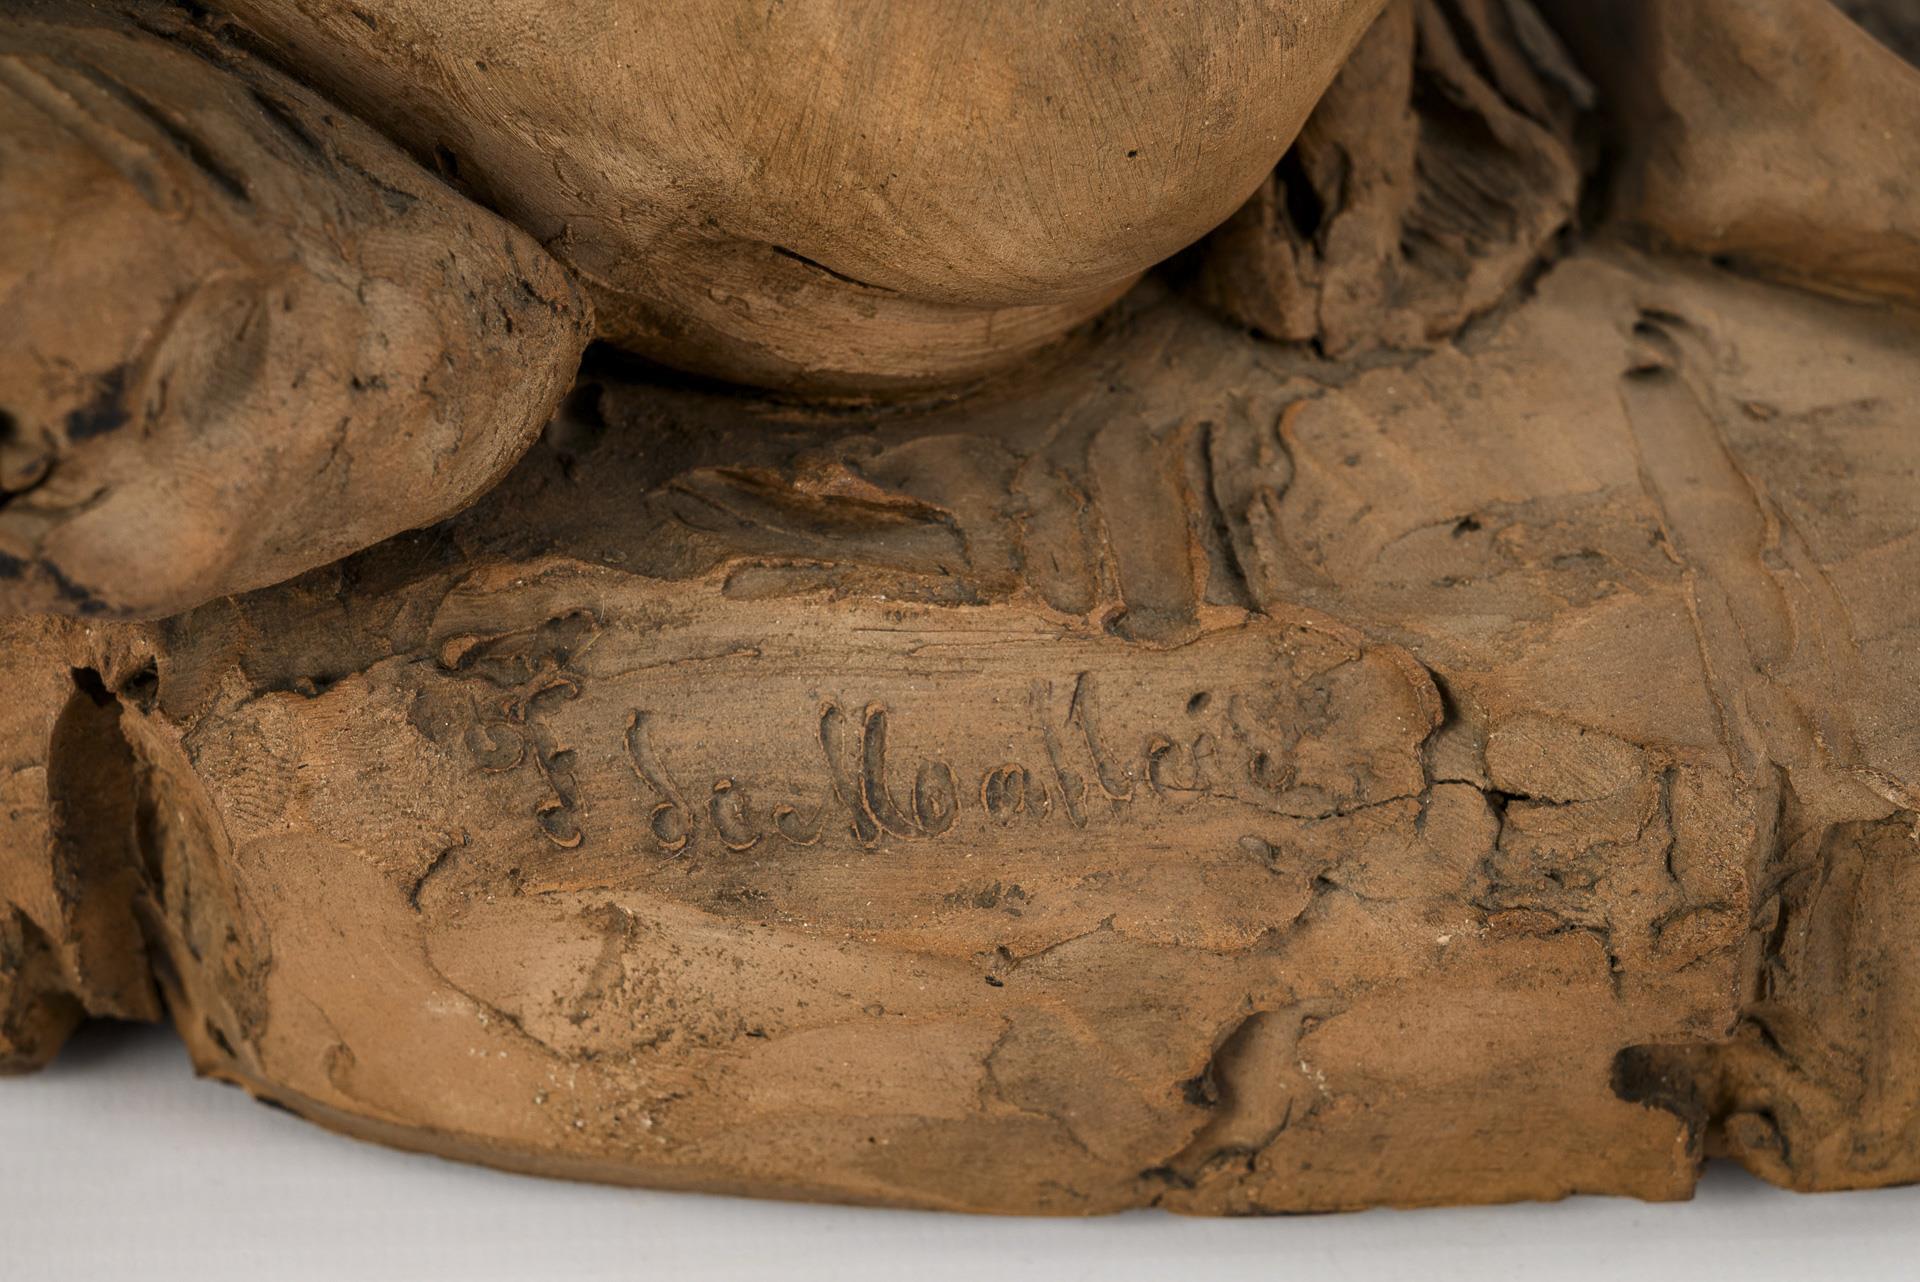 F de Moalleis